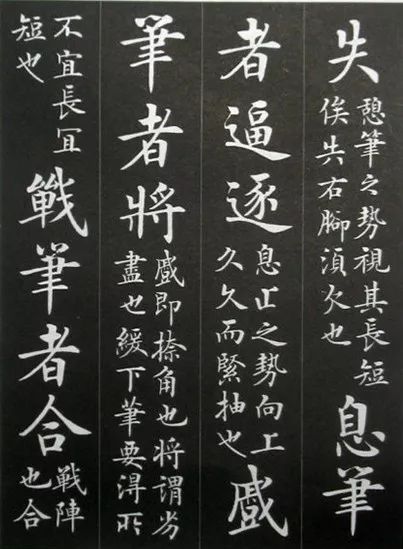 失
憩筆之勢視其長短
俟失右腳湏欠也
息筆
者逼逐
息止之勢向上
久久而緊抽也
戚
筆者將
戚即捺角也将謂劣
盡也緩下筆要得所
不宜長冝
短也
戰筆者合
戰陣
也合